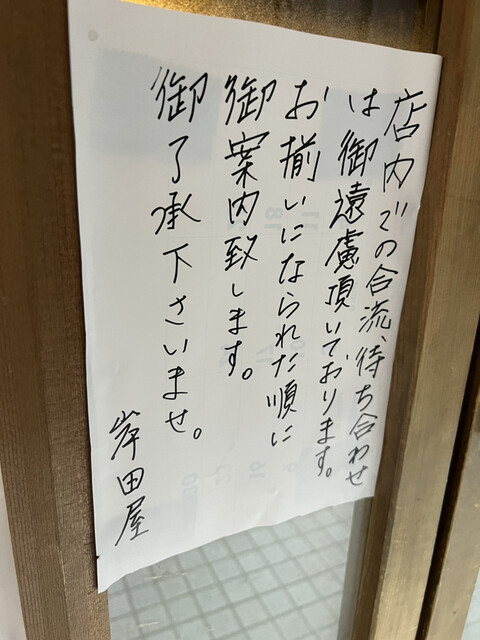 店内での合流、待ち合わせ
は御遠慮頂いております。
お揃いになられた順に
御案内致します。
御了承下さいませ。
岸田屋